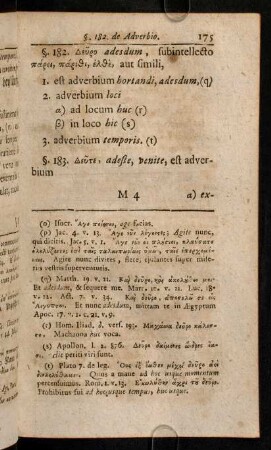 §. 182. de Adverbio. 175
§. 182. Δεῦρο adesdum, subintellecto
πάρει, πάριθι, ἐλθὲ, aut simili,
1. est adverbium hortandi, adesdum, (q)
2. adverbium loci
α) ad locum huc (r)
β) in loco hic (s)
3. adverbium temporis. (t)
§. 183. Δεῦτε, adeste, venite, est adver-
bium
M 4 a) ex-
(o) Isocr. Ἄγε age
(p) Jac. 4. v. 13. Ἄγε νῦν οἱ λέγοντες, Agite nunc,
qui dicitis. Jac. 5. v. 1. Ἄγε νῦν οἱ πλούσιοι, κλαύσατε
ὀλολύζοντες ἐπὶ ταῖς
Agite nunc divites, flete, ejulantes super miseria
vestris supervenientibus.
(q) Matth. 19. v. 21. Καὶ δεῦρο,
Et adesdum, & sequere me. Marc. 10. v. 21. Luc. 18.
v. 22. Act. 7. v. 34. Καὶ νῦν δεῦρο, ἀποστελῶ σε εἰς
Αἴγυπτον. Et nunc adesdum, mittam te in Ægyptum
Apoc. 17. v. 1. c. 21. v. 9.
(r) Hom. Iliad. δ. verf. 193. Μαχάονα δεῦρο κάλεσ-
σον. Machaona huc voca.
(s) Apollon. l. 2. 876. Δεῦρο
periti viri sunt.
(t) Plato 7. de leg. μέχρι δεῦρο
Quos a mane ad hoc usque momentum
percensuimus. Rom. 1. v. 13. ἄχρι τοῦ δεῦρο.
Prohibitus fui ad hocusque tempus, huc usque.